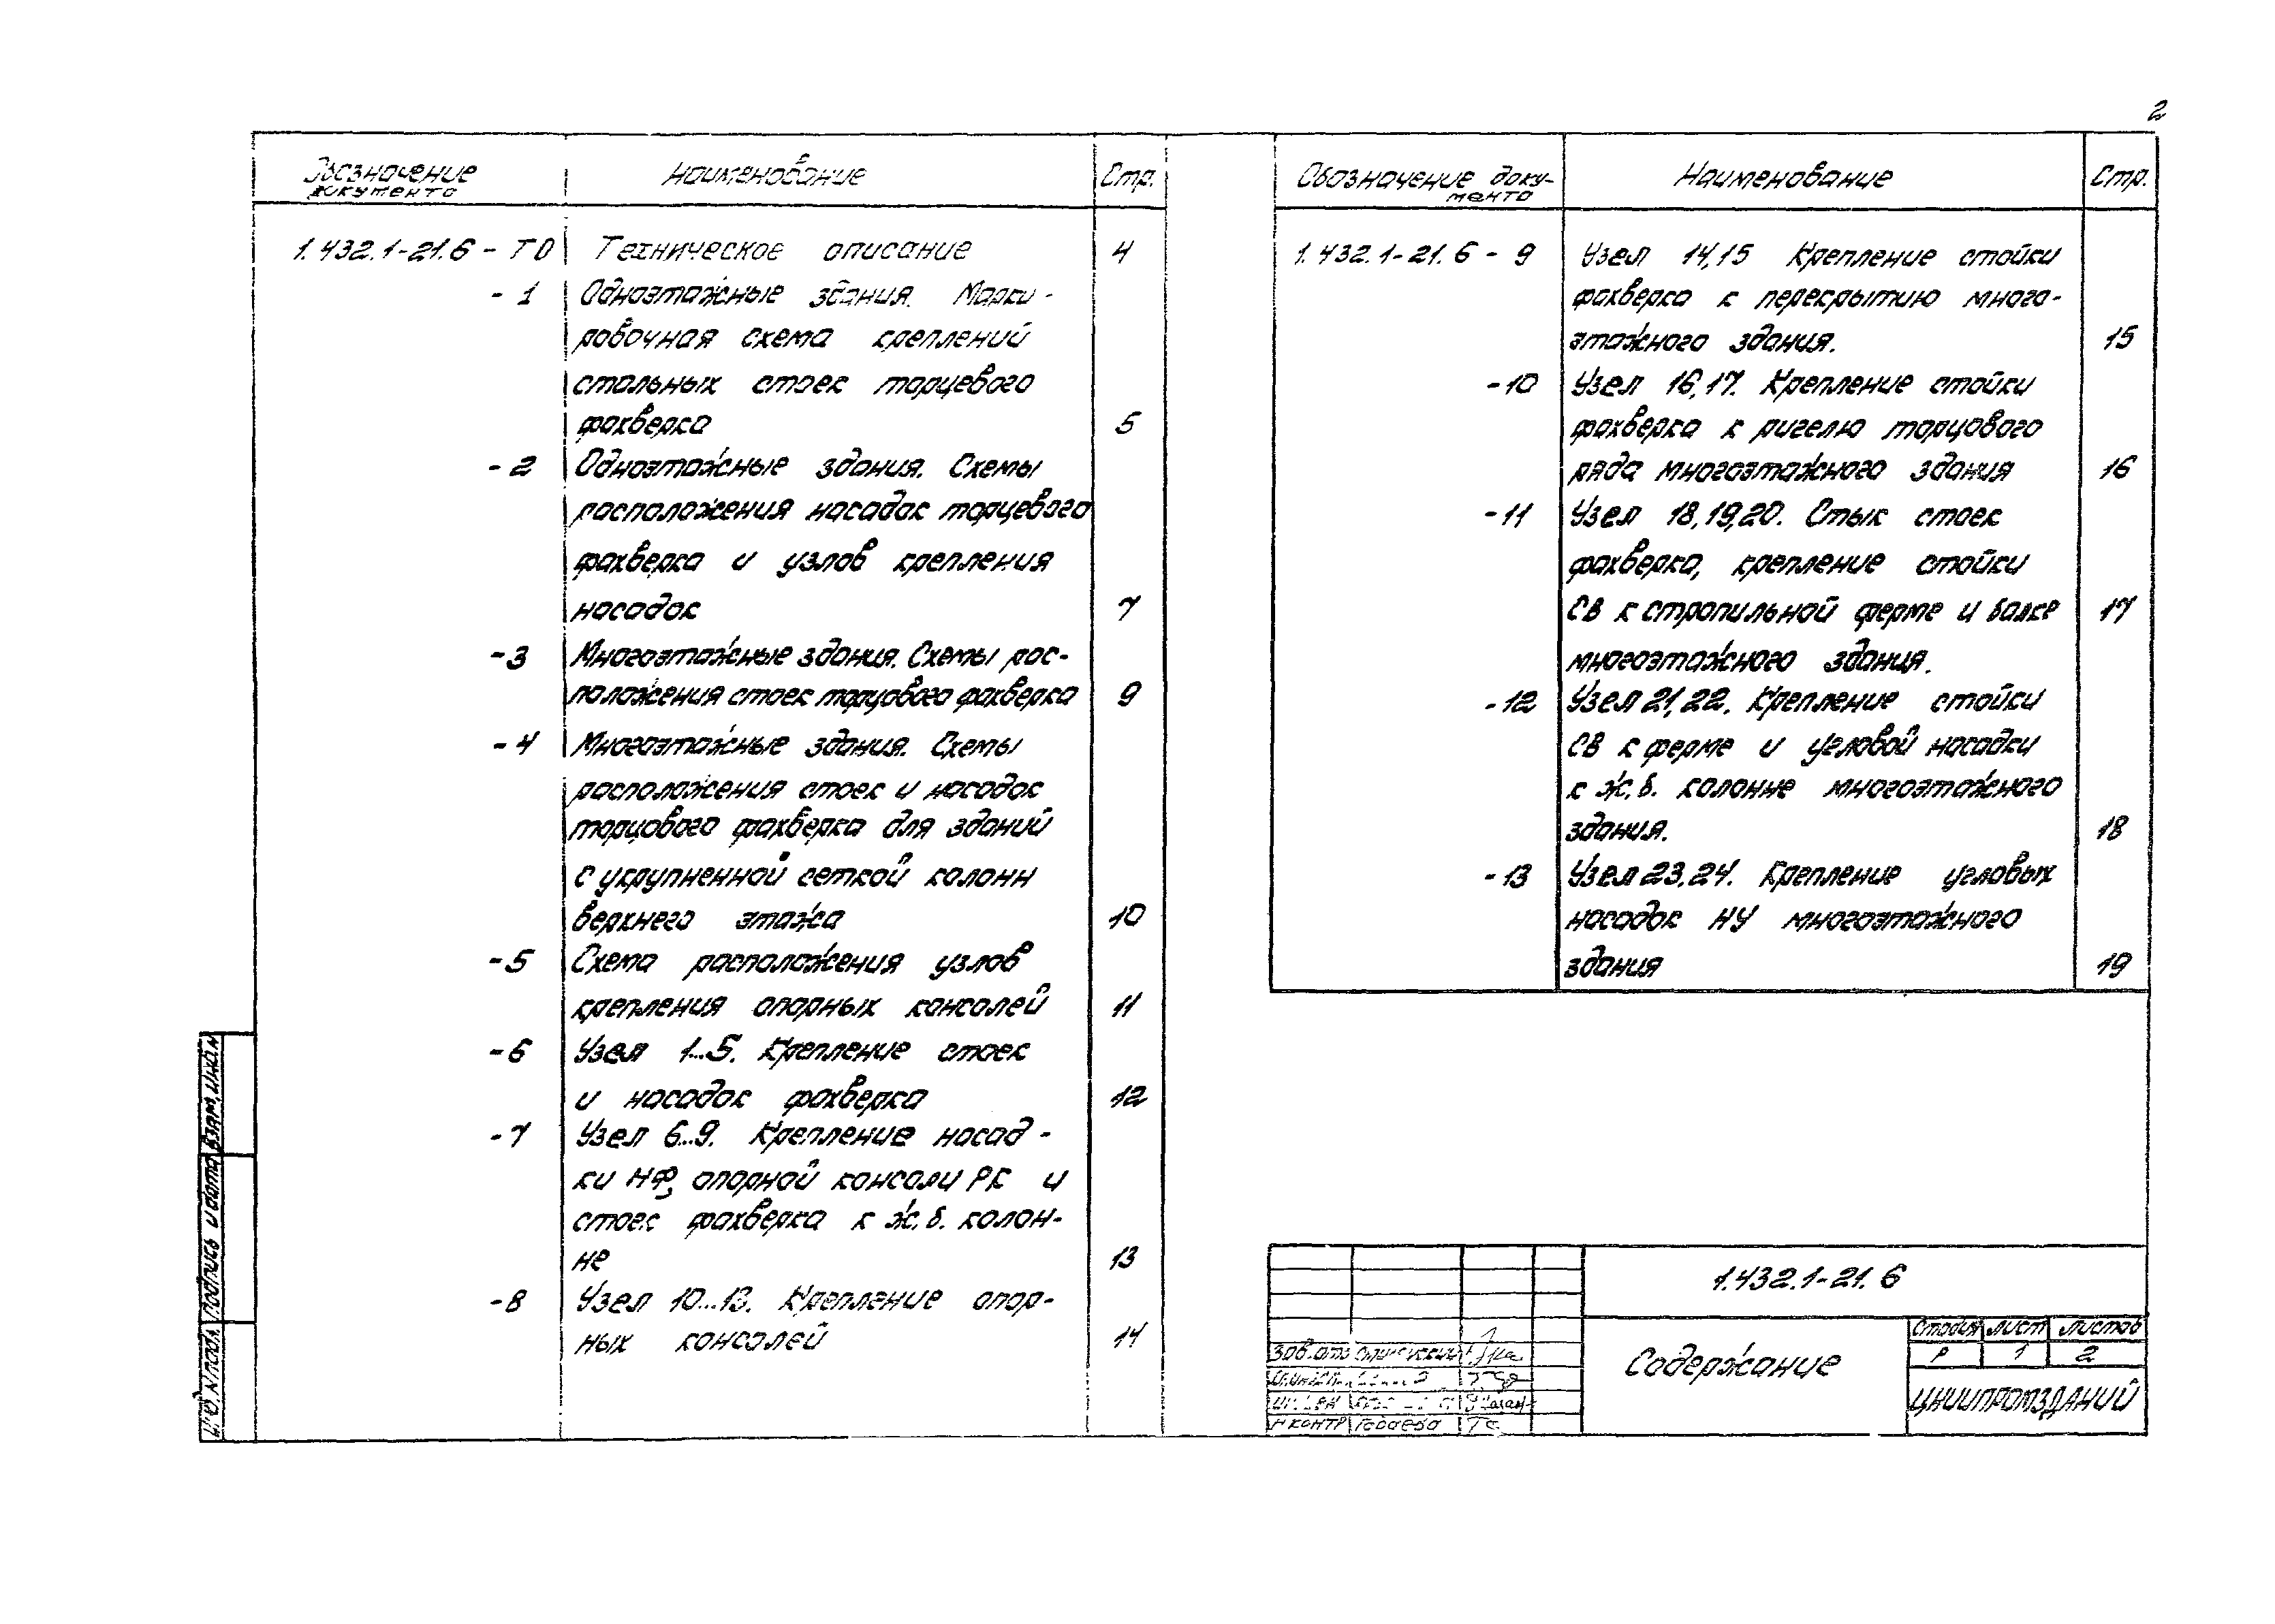 2
Обозначение
документа
Наименование
Стр.
1.432.1-21.6 - ТО Техническое описание 4
- 1 Одноэтажные здания. Марки-
ровочная схема креплений
стальных стоек торцевого
фахверка 5
- 2 Одноэтажные здания. Схемы
расположения насадок торцевого
фахверка и узлов крепления
насадок 7
- 3 Многоэтажные здания. Схемы рас-
положения стоек торцового фахверка 9
- 4 Многоэтажные здания. Схемы
расположения стоек и насадок
торцового фахверка для зданий
с укрупненной сеткой колонн
верхнего этажа 10
- 5 Схема расположения узлов
крепления опорных консолей 11
- 6 Узел 1...5. Крепление стоек
и насадок фахверка 12
- 7 Узел 6...9. Крепление насад-
ки НФ, опорной консоли РК и
стоек фахверка к ж.б. колон-
не 13
- 8 Узел 10...13. Крепление опор-
ных консолей 14
Обозначение доку-
мента
Наименование
Стр.
1.432.1-21.6 - 9 Узел 14,15 Крепление стойки
фахверка к перекрытию много-
этажного здания. 15
- 10 Узел 16,17. Крепление стойки
фахверка к ригелю торцового
ряда многоэтажного здания 16
- 11 Узел 18,19,20. Стык стоек
фахверка, крепление стойки
СВ к стропильной ферме и балке 17
многоэтажного здания.
- 12 Узел 21,22. Крепление стойки
СВ к ферме и угловой насадки
к ж.б. колонне многоэтажного
здания. 18
- 13 Узел 23,24. Крепление угловых
насадок НУ многоэтажного
здания 19
1.432.1-21.6
Содержание
Стадия Лист Листов
Р 1 2
ЦНИИПРОМЗДАНИЙ
Зав.отд
Н контр
Взам.инв.N
Подпись и дата
Инв.N подл.